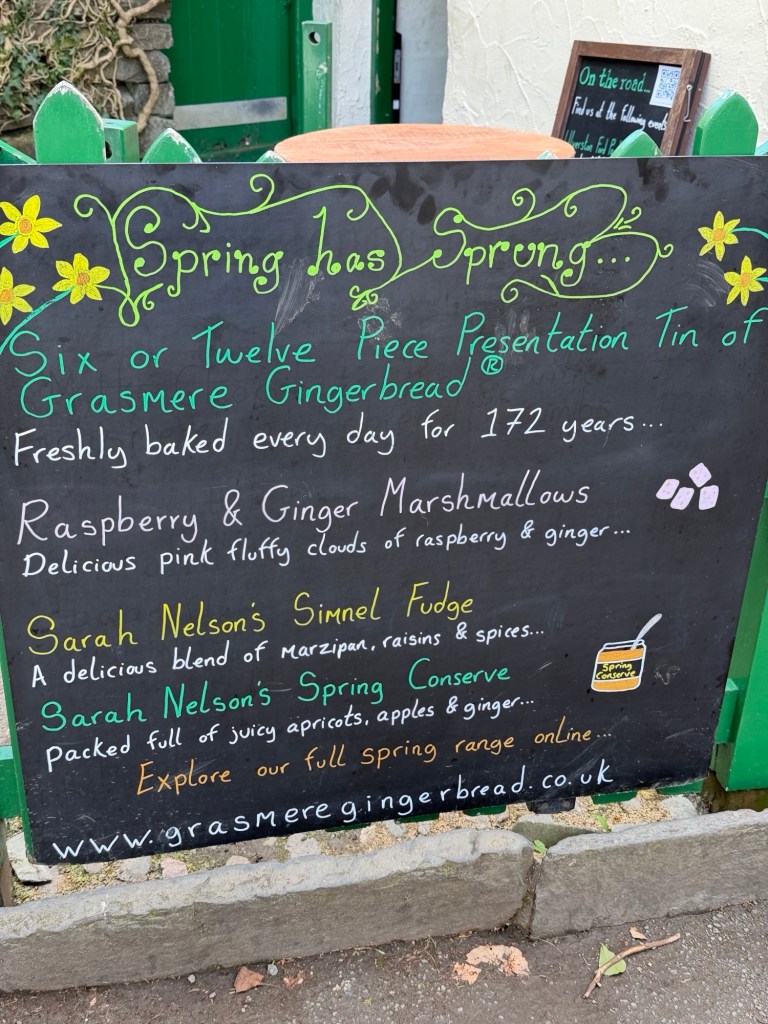 On the road...
Find us at the following events
Spring has Sprung...
Six or Twelve Piece Presentation Tin of
Grasmere Gingerbread®
Freshly baked every day for 172 years...
Raspberry & Ginger Marshmallows
Delicious pink fluffy clouds of raspberry & ginger...
Sarah Nelson's Simnel Fudge
A delicious blend of marzipan, raisins & spices...
Sarah Nelson's Spring Conserve
Packed full of juicy apricots, apples & ginger...
Spring
Conserve
Explore our full spring range online...
www.grasmeregingerbread.co.uk